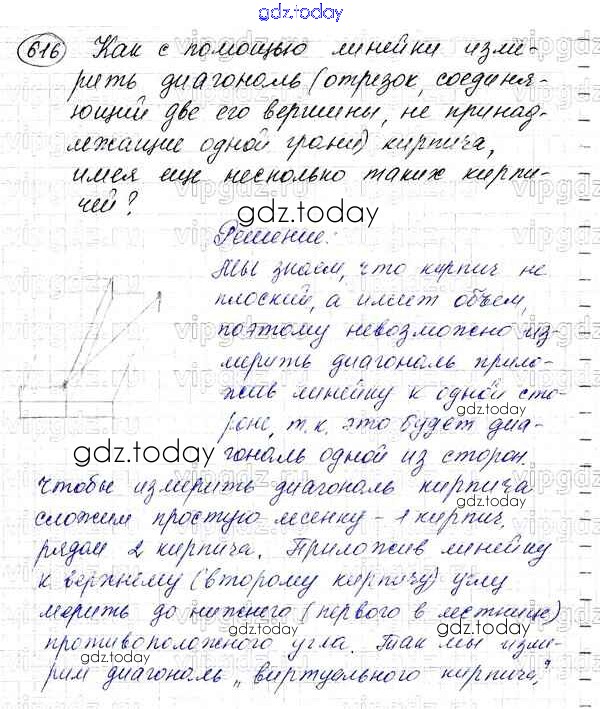 gdz.today
616 Как с помощью линейки изме-
рить диагональ (отрезок, соединя-
ющий две его вершины, не принад-
лежащие одной грани) кирпича,
имея еще несколько таких кирпи-
чей?
gdz.today
Решение:
Мы знаем, что кирпич не
плоский, а имеет объем,
поэтому невозможно из-
мерить диагональ прило-
жив линейку к одной сто-
gdz.today
роне, т.к. это будет диа-
gdz.today
гональ одной из сторон.
Чтобы измерить диагональ кирпича
сложим простую лесенку - 1 кирпич,
рядом 2 кирпича. Приложив линейку
к верхнему (второму кирпичу) углу
мерить до нижнего (первого в лестнице)
gdz.today
противоположного угла. Так мы изме-
gdz.today
рим диагональ „виртуального кирпича."